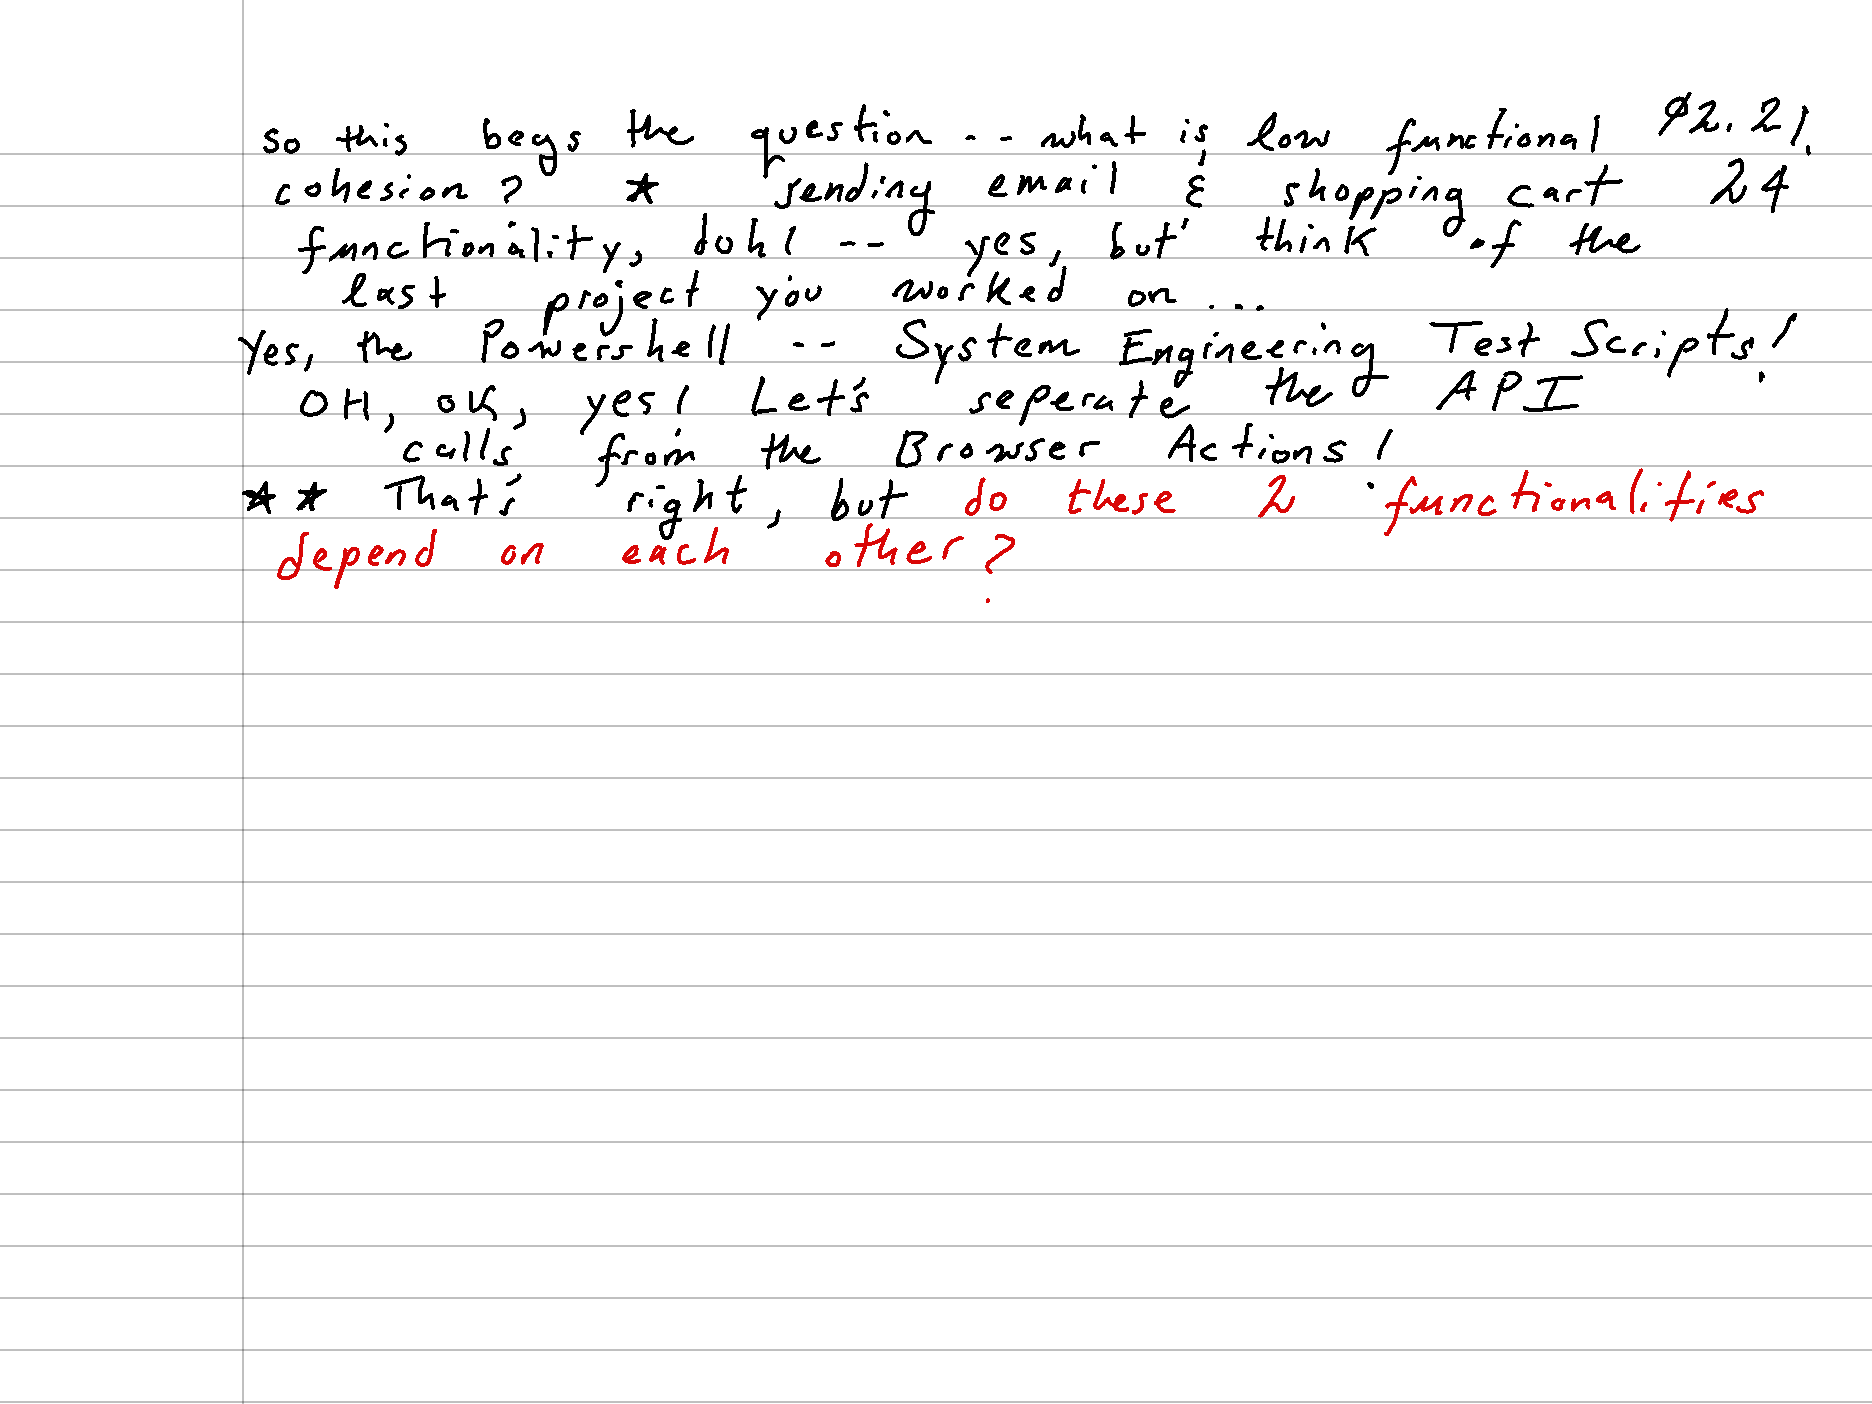 so this begs the question -- what is low functional Ø2.21.
cohesion? ★ sending email & shopping cart 24
functionality, doh! -- yes, but think of the
last project you worked on...
Yes, the Powershell -- System Engineering Test Scripts!
OH, OK, yes! Let's seperate the API
calls from the Browser Actions!
★★ That's right, but do these 2 functionalities
depend on each other?